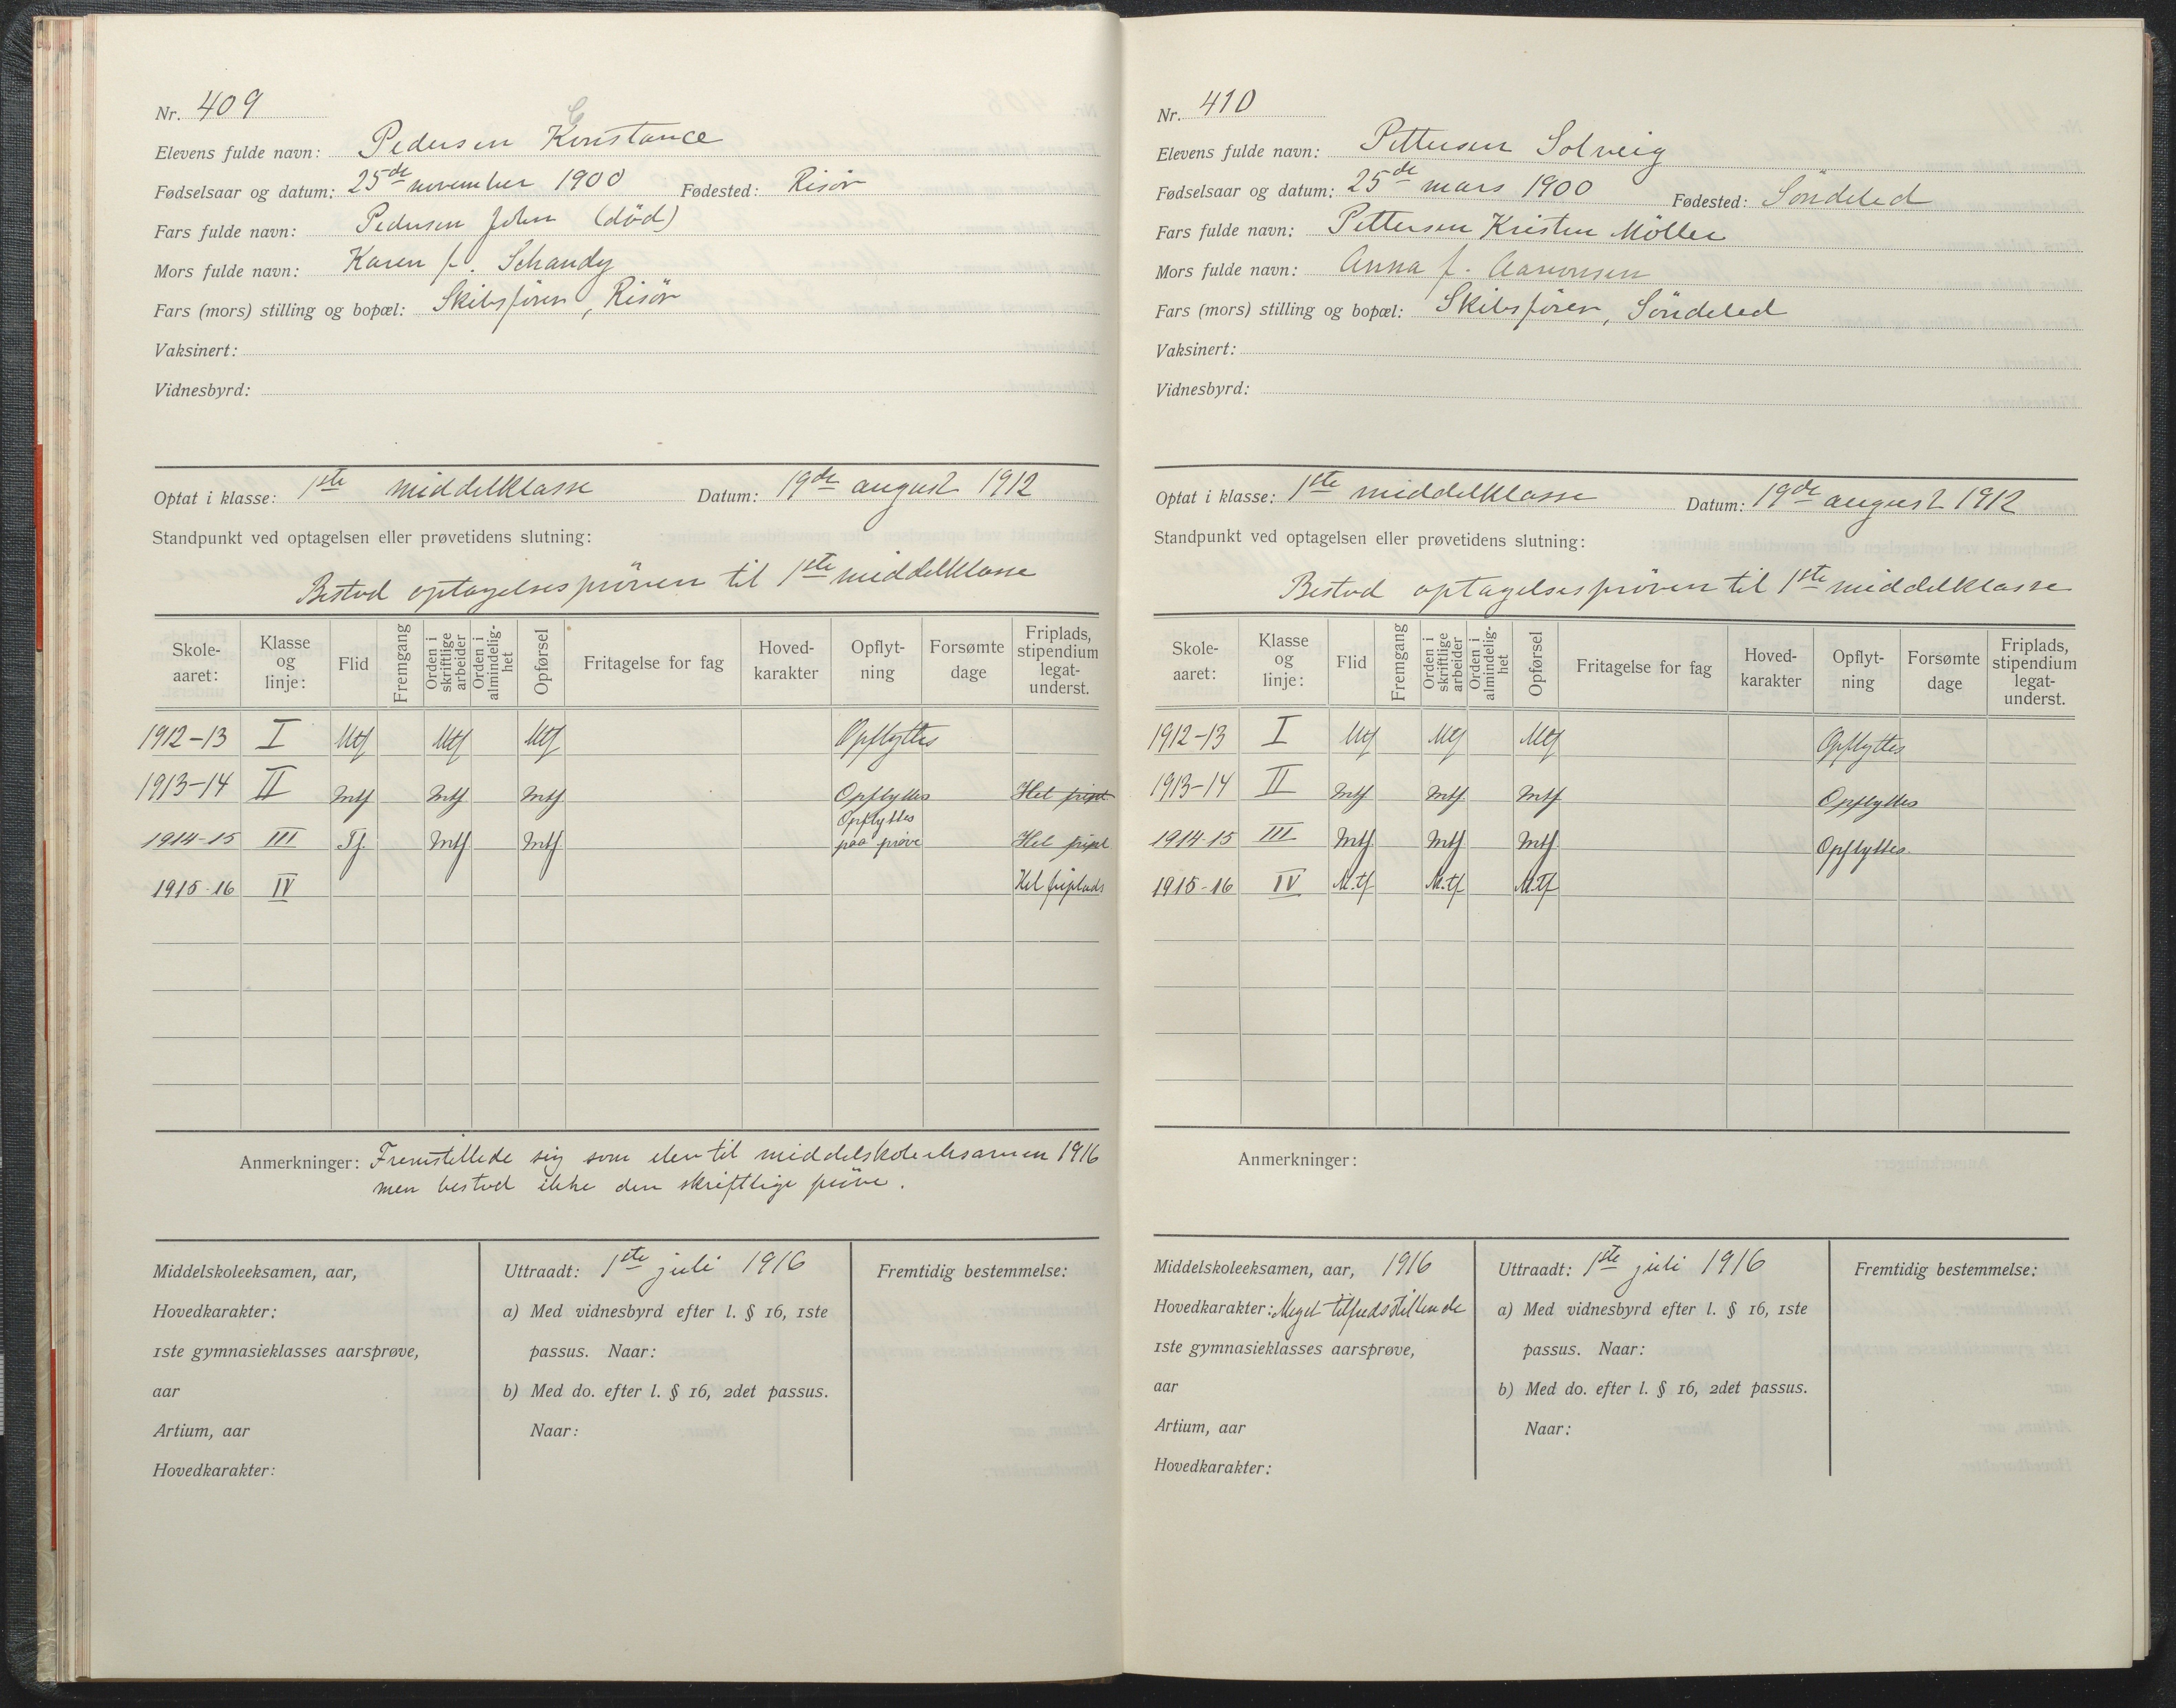 Nr. 409
Elevens fulde navn: Pedersen Konstance
C
Fødselsaar og datum: 25de november 1900 Fødested: Risör
Fars fulde navn: Pedersen John (död)
Mors fulde navn: Karen f. Schandy
Fars (mors) stilling og bopæl: Skibsförer, Risör
Vaksinert:
Vidnesbyrd:
Optat i klasse: 1ste middelklasse Datum: 19de august 1912
Standpunkt ved optagelsen eller prøvetidens slutning:
Bestod optagelsespröven til 1ste middelklasse
Skole-aaret: Klasse og linje: Flid Fremgang Orden i skriftlige arbeider Orden i almindelig-het Opførsel Fritagelse for fag Hoved-karakter Opflyt-ning Forsømte dage Friplads, stipendium legat-underst.
1912-13 I Mtf Mtf Mtf Opflyttes
1913-14 II Mtf Mtf Mtf Opflyttes Hel fripl.
1914-15 III Tf. Mtf Mtf Opflyttes paa prøve Hel fripl
1915-16 IV Hel friplads
Anmerkninger: Fremstillede sig som elev til middelskoleeksamen 1916
men bestod ikke den skriftlige pröve.
Middelskoleeksamen, aar,
Hovedkarakter:
1ste gymnasieklasses aarsprøve,
aar
Artium, aar
Hovedkarakter:
Uttraadt: 1ste juli 1916
a) Med vidnesbyrd efter l. § 16, 1ste
passus. Naar:
b) Med do. efter l. § 16, 2det passus.
Naar:
Fremtidig bestemmelse:
Nr. 410
Elevens fulde navn: Pettersen Solveig
Fødselsaar og datum: 25de mars 1900 Fødested: Söndeled
Fars fulde navn: Pettersen Kristen Möller
Mors fulde navn: Anna f. Aanonsen
Fars (mors) stilling og bopæl: Skibsförer, Söndeled
Vaksinert:
Vidnesbyrd:
Optat i klasse: 1ste middelklasse Datum: 19de august 1912
Standpunkt ved optagelsen eller prøvetidens slutning:
Bestod optagelsespröven til 1ste middelklasse
Skole-aaret: Klasse og linje: Flid Fremgang Orden i skriftlige arbeider Orden i almindelig-het Opførsel Fritagelse for fag Hoved-karakter Opflyt-ning Forsømte dage Friplads, stipendium legat-underst.
1912-13 I Mtf Mtf Mtf Opflyttes
1913-14 II Mtf Mtf Mtf Opflyttes
1914-15 III Mtf Mtf Mtf Opflyttes
1915-16 IV M.tf M.tf M.tf
Anmerkninger:
Middelskoleeksamen, aar, 1916
Hovedkarakter: Meget tilfredsstillende
1ste gymnasieklasses aarsprøve,
aar
Artium, aar
Hovedkarakter:
Uttraadt: 1ste juli 1916
a) Med vidnesbyrd efter l. § 16, 1ste
passus. Naar:
b) Med do. efter l. § 16, 2det passus.
Naar:
Fremtidig bestemmelse: